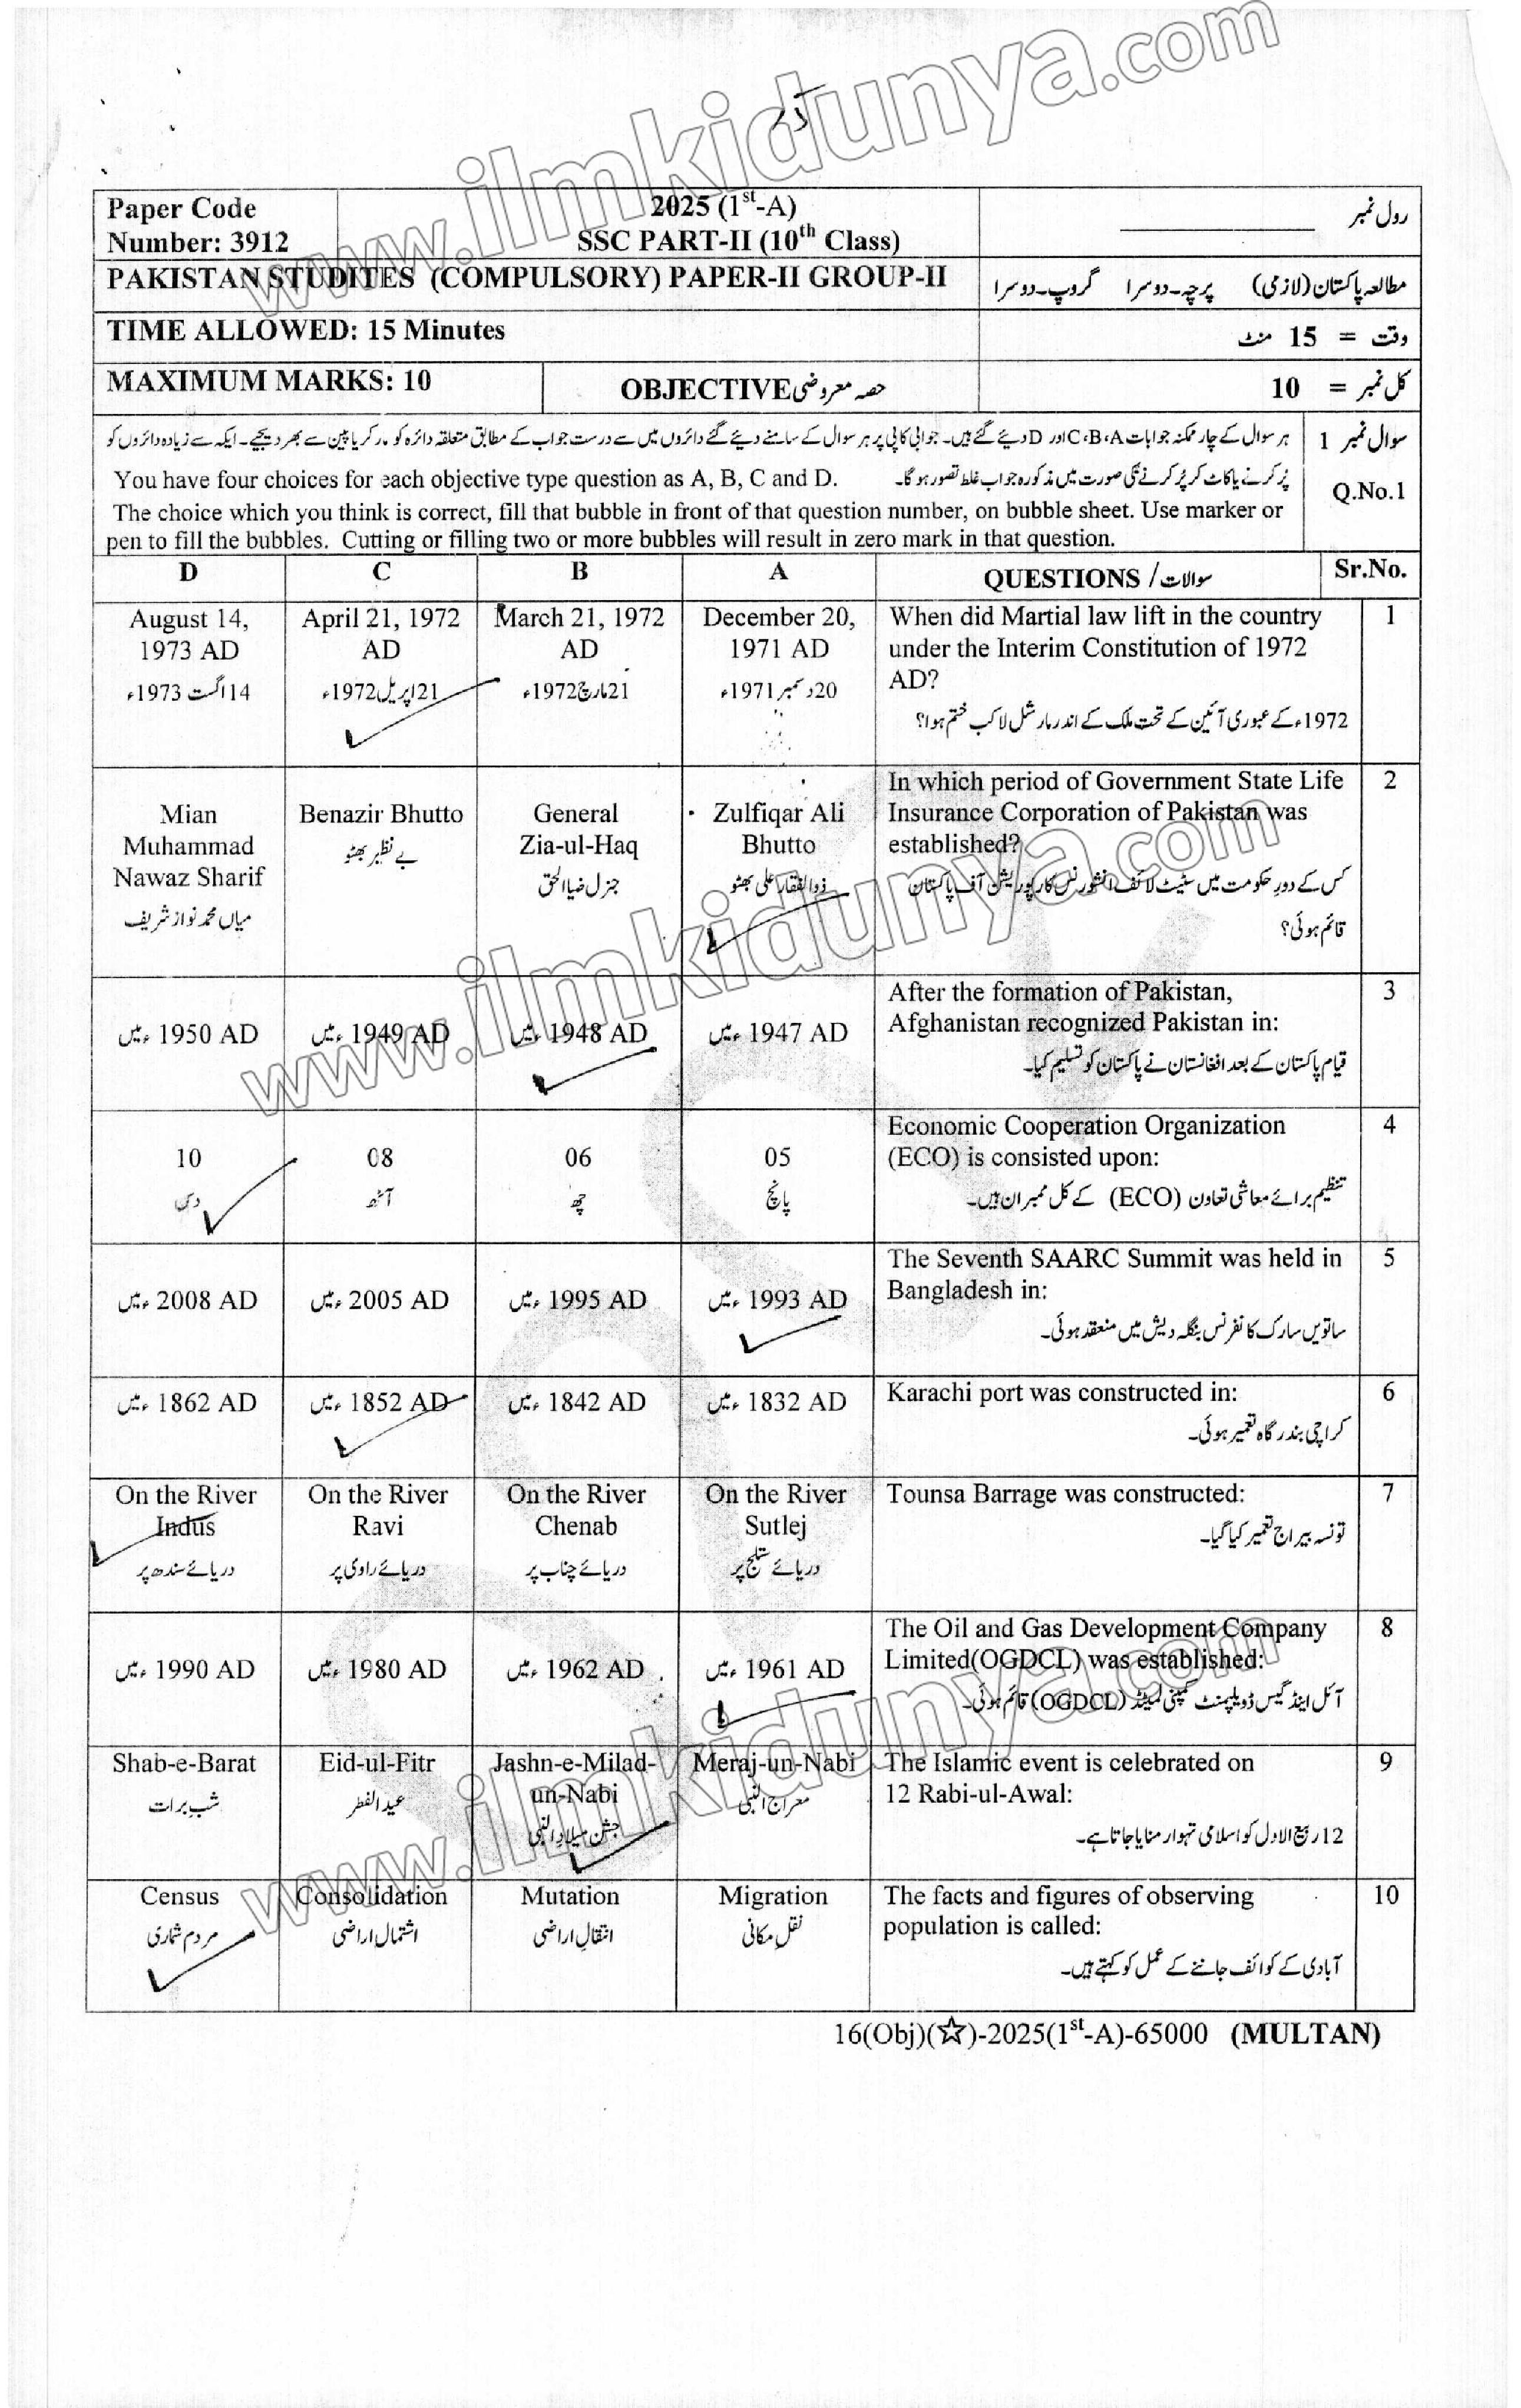 Paper Code
Number: 3912
2025 (1st-A)
SSC PART-II (10th Class)
رول نمبر ____________
PAKISTAN STUDITES (COMPULSORY) PAPER-II GROUP-II
مطالعہ پاکستان (لازمی) پرچہ۔دوسرا گروپ۔دوسرا
TIME ALLOWED: 15 Minutes
وقت = 15 منٹ
MAXIMUM MARKS: 10
OBJECTIVE حصہ معروضی
کل نمبر = 10
سوال نمبر 1
ہر سوال کے چار ممکنہ جوابات A،B،C اور D دیئے گئے ہیں۔ جوابی کاپی پر ہر سوال کے سامنے دیئے گئے دائروں میں سے درست جواب کے مطابق متعلقہ دائرہ کو مارکر یا پین سے بھر دیجیے۔ ایک سے زیادہ دائروں کو
پُر کرنے یا کاٹ کر پُر کرنے کی صورت میں مذکورہ جواب غلط تصور ہو گا۔
Q.No.1
You have four choices for each objective type question as A, B, C and D.
The choice which you think is correct, fill that bubble in front of that question number, on bubble sheet. Use marker or
pen to fill the bubbles. Cutting or filling two or more bubbles will result in zero mark in that question.
D C B A QUESTIONS / سوالات Sr.No.
1
When did Martial law lift in the country
under the Interim Constitution of 1972
AD?
1972ء کے عبوری آئین کے تحت ملک کے اندر مارشل لا کب ختم ہوا؟
December 20,
1971 AD
20 دسمبر 1971ء
March 21, 1972
AD
21 مارچ 1972ء
April 21, 1972
AD
21 اپریل 1972ء
August 14,
1973 AD
14 اگست 1973ء
2
In which period of Government State Life
Insurance Corporation of Pakistan was
established?
کس کے دور حکومت میں سٹیٹ لائف انشورنس کارپوریشن آف پاکستان
قائم ہوئی؟
Zulfiqar Ali
Bhutto
ذوالفقار علی بھٹو
General
Zia-ul-Haq
جنرل ضیاالحق
Benazir Bhutto
بے نظیر بھٹو
Mian
Muhammad
Nawaz Sharif
میاں محمد نواز شریف
3
After the formation of Pakistan,
Afghanistan recognized Pakistan in:
قیام پاکستان کے بعد افغانستان نے پاکستان کو تسلیم کیا۔
1947 AD ء میں
1948 AD ء میں
1949 AD ء میں
1950 AD ء میں
4
Economic Cooperation Organization
(ECO) is consisted upon:
تنظیم برائے معاشی تعاون (ECO) کے کل ممبران ہیں۔
05
پانچ
06
چھ
08
آٹھ
10
دس
5
The Seventh SAARC Summit was held in
Bangladesh in:
ساتویں سارک کانفرنس بنگلہ دیش میں منعقد ہوئی۔
1993 AD ء میں
1995 AD ء میں
2005 AD ء میں
2008 AD ء میں
6
Karachi port was constructed in:
کراچی بندر گاہ تعمیر ہوئی۔
1832 AD ء میں
1842 AD ء میں
1852 AD ء میں
1862 AD ء میں
7
Tounsa Barrage was constructed:
تونسہ بیراج تعمیر کیا گیا۔
On the River
Sutlej
دریائے ستلج پر
On the River
Chenab
دریائے چناب پر
On the River
Ravi
دریائے راوی پر
On the River
Indus
دریائے سندھ پر
8
The Oil and Gas Development Company
Limited(OGDCL) was established:
آئل اینڈ گیس ڈویلپمنٹ کمپنی لمیٹڈ (OGDCL) قائم ہوئی۔
1961 AD ء میں
1962 AD ء میں
1980 AD ء میں
1990 AD ء میں
9
The Islamic event is celebrated on
12 Rabi-ul-Awal:
12 ربیع الاول کو اسلامی تہوار منایا جاتا ہے۔
Meraj-un-Nabi
معراج النبی
Jashn-e-Milad-
un-Nabi
جشن میلاد النبی
Eid-ul-Fitr
عید الفطر
Shab-e-Barat
شب برات
10
The facts and figures of observing
population is called:
آبادی کے کوائف جاننے کے عمل کو کہتے ہیں۔
Migration
نقل مکانی
Mutation
انتقال اراضی
Consolidation
اشتمال اراضی
Census
مردم شماری
16(Obj)(☆)-2025(1st-A)-65000 (MULTAN)
www.ilmkidunya.com
www.ilmkidunya.com
www.ilmkidunya.com